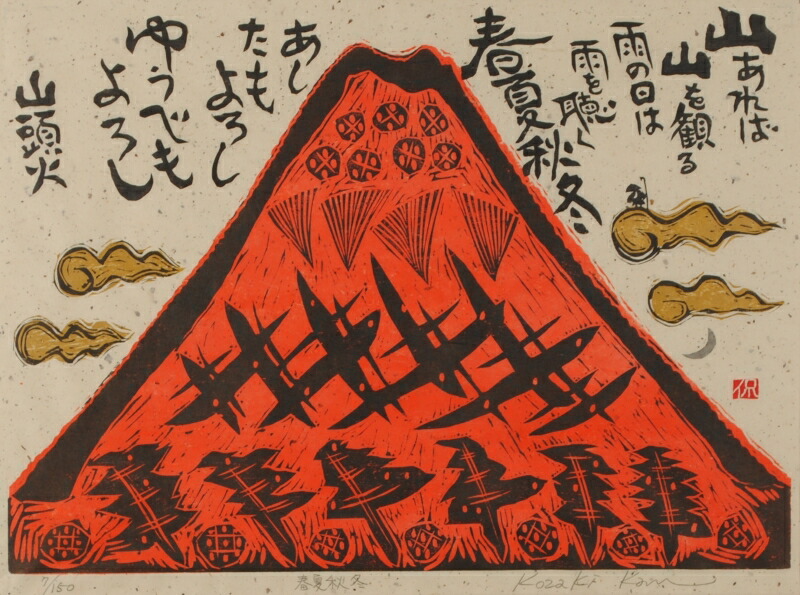 山あれば
山を観る
雨の日は
雨を聴く
春夏秋冬
あしたもよろし
ゆうべもよろし
山頭火
7/150
春夏秋冬
Kozaki Kan